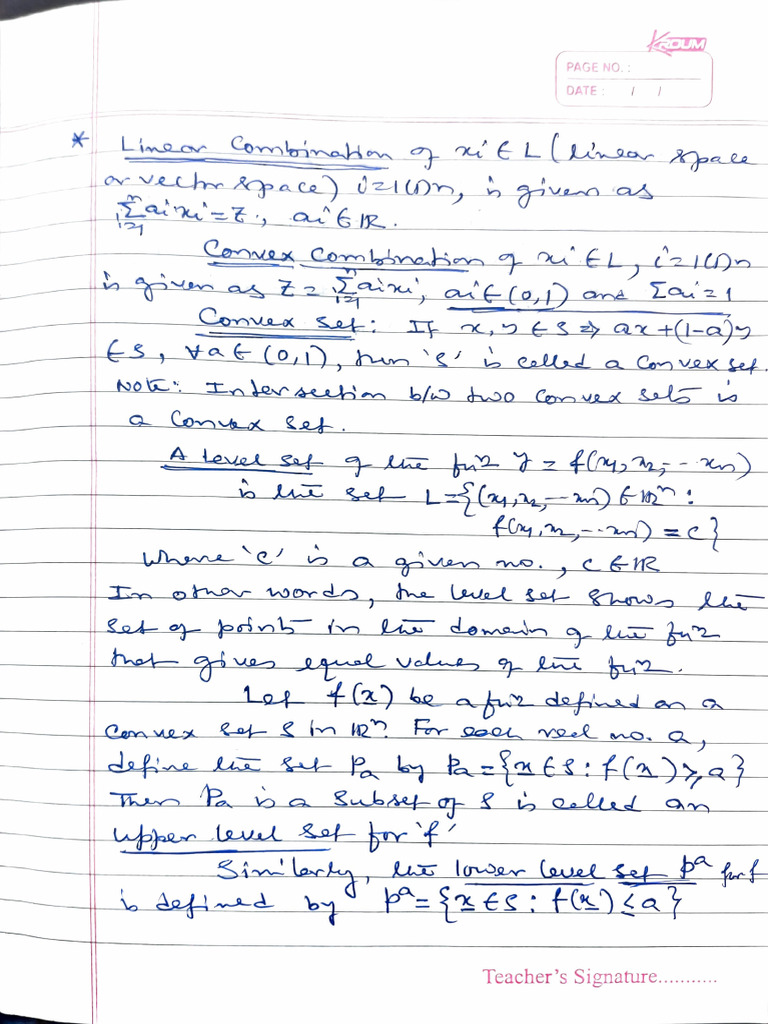 KROUM
PAGE NO. :
DATE : / /
* Linear Combination of xi ∈ L (linear space
or vector space) i=1(1)n, is given as
∑ⁿᵢ₌₁ aixi = Z., ai ∈ IR.
Convex Combination of xi ∈ L, i=1(1)n
is given as Z = ∑ⁿᵢ₌₁ aixi, ai ∈ (0,1) and ∑ai = 1
Convex set: If x, y ∈ S ⇒ ax + (1-a)y
∈ S, ∀ a ∈ (0,1), then 'S' is called a convex set.
Note: Intersection b/w two convex sets is
a convex set.
A level set of the fun y = f(x1, x2, -- xn)
is the set L = {(x1, x2, -- xn) ∈ IRⁿ :
f(x1, x2, -- xn) = c}
where 'c' is a given no., c ∈ IR
In other words, the level set shows the
set of points in the domain of the fun
that gives equal values of the fun.
Let f(x) be a fun defined on a
convex set S in IRⁿ. For each real no. a,
define the set Pa by Pa = {x ∈ S : f(x) ≥ a}
Then Pa is a subset of S is called an
upper level set for 'f'
Similarly, the lower level set Pᵃ for f
is defined by Pᵃ = {x ∈ S : f(x) ≤ a}
Teacher's Signature...........